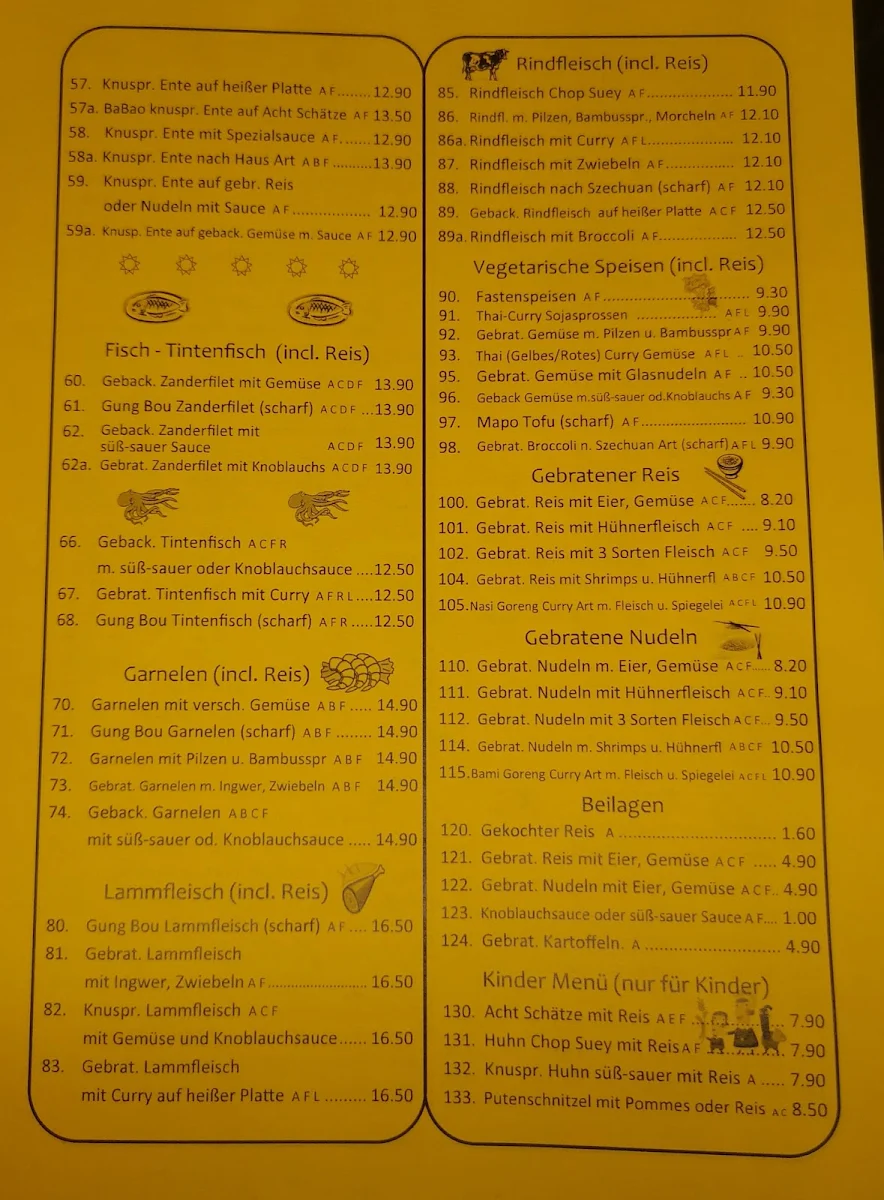 57. Knuspr. Ente auf heißer Platte A F........ 12.90
57a. BaBao knuspr. Ente auf Acht Schätze A F 13.50
58. Knuspr. Ente mit Spezialsauce A F....... 12.90
58a. Knuspr. Ente nach Haus Art A B F ..........13.90
59. Knuspr. Ente auf gebr. Reis
oder Nudeln mit Sauce A F.................. 12.90
59a. Knusp. Ente auf geback. Gemüse m. Sauce A F 12.90
Fisch - Tintenfisch (incl. Reis)
60. Geback. Zanderfilet mit Gemüse A C D F 13.90
61. Gung Bou Zanderfilet (scharf) A C D F ...13.90
62. Geback. Zanderfilet mit
süß-sauer Sauce A C D F 13.90
62a. Gebrat. Zanderfilet mit Knoblauchs A C D F 13.90
66. Geback. Tintenfisch A C F R
m. süß-sauer oder Knoblauchsauce ....12.50
67. Gebrat. Tintenfisch mit Curry A F R L....12.50
68. Gung Bou Tintenfisch (scharf) A F R .....12.50
Garnelen (incl. Reis)
70. Garnelen mit versch. Gemüse A B F ..... 14.90
71. Gung Bou Garnelen (scharf) A B F ........ 14.90
72. Garnelen mit Pilzen u. Bambusspr A B F 14.90
73. Gebrat. Garnelen m. Ingwer, Zwiebeln A B F 14.90
74. Geback. Garnelen A B C F
mit süß-sauer od. Knoblauchsauce ..... 14.90
Lammfleisch (incl. Reis)
80. Gung Bou Lammfleisch (scharf) A F .... 16.50
81. Gebrat. Lammfleisch
mit Ingwer, Zwiebeln A F........................ 16.50
82. Knuspr. Lammfleisch A C F
mit Gemüse und Knoblauchsauce...... 16.50
83. Gebrat. Lammfleisch
mit Curry auf heißer Platte A F L ......... 16.50
Rindfleisch (incl. Reis)
85. Rindfleisch Chop Suey A F.................... 11.90
86. Rindfl. m. Pilzen, Bambusspr., Morcheln A F 12.10
86a. Rindfleisch mit Curry A F L.................... 12.10
87. Rindfleisch mit Zwiebeln A F................ 12.10
88. Rindfleisch nach Szechuan (scharf) A F 12.10
89. Geback. Rindfleisch auf heißer Platte A C F 12.50
89a. Rindfleisch mit Broccoli A F.................. 12.50
Vegetarische Speisen (incl. Reis)
90. Fastenspeisen A F................................... 9.30
91. Thai-Curry Sojasprossen ................... A F L 9.90
92. Gebrat. Gemüse m. Pilzen u. Bambusspr A F 9.90
93. Thai (Gelbes/Rotes) Curry Gemüse A F L .. 10.50
95. Gebrat. Gemüse mit Glasnudeln A F .. 10.50
96. Geback Gemüse m.süß-sauer od.Knoblauchs A F 9.30
97. Mapo Tofu (scharf) A F.......................... 10.90
98. Gebrat. Broccoli n. Szechuan Art (scharf) A F L 9.90
Gebratener Reis
100. Gebrat. Reis mit Eier, Gemüse A C F....... 8.20
101. Gebrat. Reis mit Hühnerfleisch A C F .... 9.10
102. Gebrat. Reis mit 3 Sorten Fleisch A C F 9.50
104. Gebrat. Reis mit Shrimps u. Hühnerfl A B C F 10.50
105. Nasi Goreng Curry Art m. Fleisch u. Spiegelei A C F L 10.90
Gebratene Nudeln
110. Gebrat. Nudeln m. Eier, Gemüse A C F...... 8.20
111. Gebrat. Nudeln mit Hühnerfleisch A C F.. 9.10
112. Gebrat. Nudeln mit 3 Sorten Fleisch A C F... 9.50
114. Gebrat. Nudeln m. Shrimps u. Hühnerfl A B C F 10.50
115. Bami Goreng Curry Art m. Fleisch u. Spiegelei A C F L 10.90
Beilagen
120. Gekochter Reis A .................................. 1.60
121. Gebrat. Reis mit Eier, Gemüse A C F ..... 4.90
122. Gebrat. Nudeln mit Eier, Gemüse A C F.. 4.90
123. Knoblauchsauce oder süß-sauer Sauce A F.... 1.00
124. Gebrat. Kartoffeln. A ............................. 4.90
Kinder Menü (nur für Kinder)
130. Acht Schätze mit Reis A E F .................. 7.90
131. Huhn Chop Suey mit Reis A F ................ 7.90
132. Knuspr. Huhn süß-sauer mit Reis A ..... 7.90
133. Putenschnitzel mit Pommes oder Reis A C 8.50